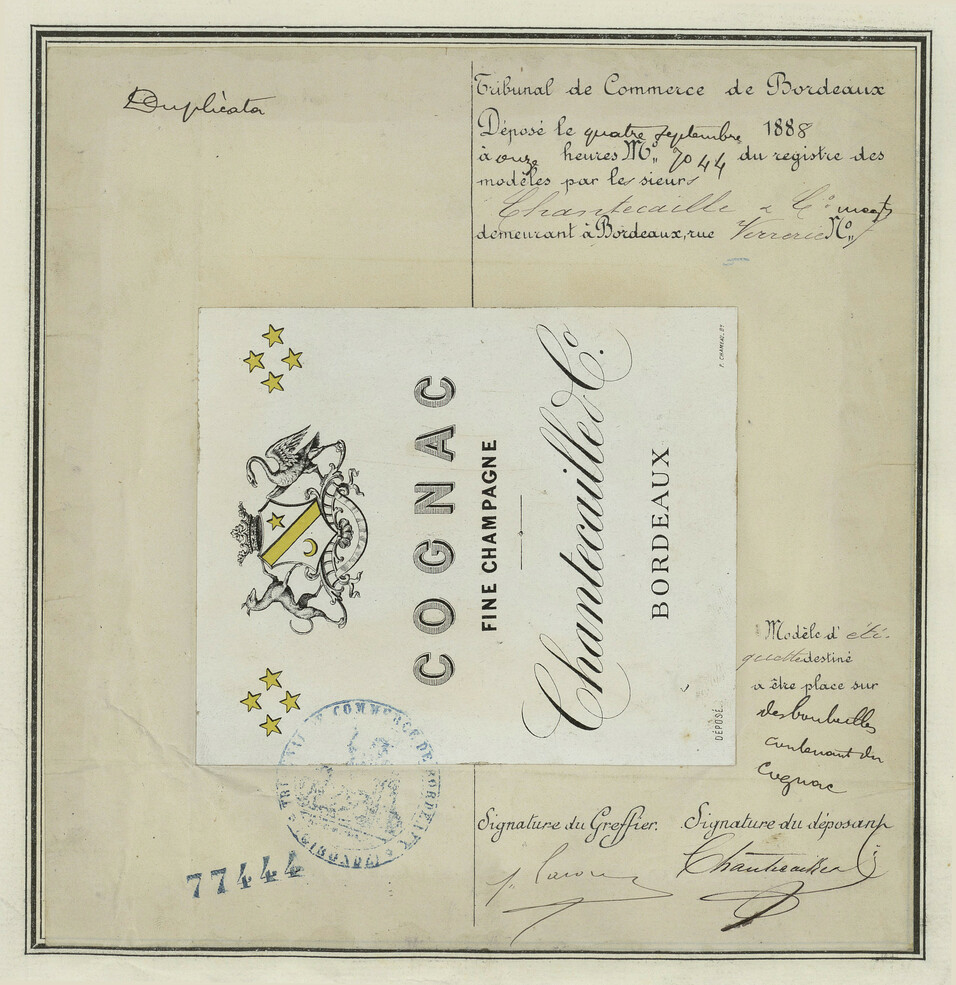 Duplicata
Tribunal de Commerce de Bordeaux
Déposé le quatre septembre 1888
à onze heures N° 7044 du registre des
modèles par les sieurs
Chantecaille & C°
demeurant à Bordeaux, rue Verrerie N°
COGNAC
FINE CHAMPAGNE
Chantecaille & Co.
BORDEAUX
DÉPOSÉ.
Modèle d'éti-
quette destiné
a être place sur
des bouteilles
contenant du
Cognac
Signature du Greffier. Signature du déposant
Chantecaille
TRIBUNAL DE COMMERCE DE BORDEAUX
(GIRONDE)
77444